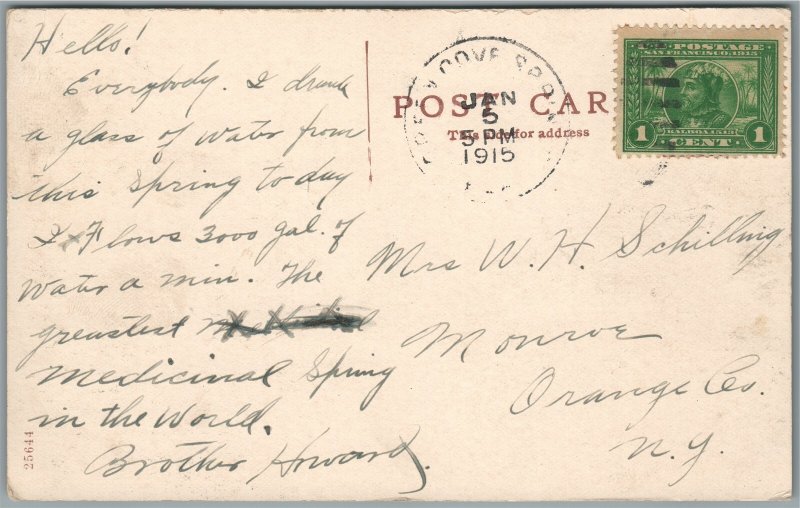 Hello!
Everybody. I drank
a glass of water from
this Spring to day
I Flows 3000 gal. of
Water a min. The
greastest
medicinal Spring
in the World.
Brother Howard.
25644
POST CAR
This for address
COVE SPRIN
JAN
5
5 PM
1915
POSTAGE
SAN FRANCISCO, 1915
BALBOA 1513
1 CENT 1
Mrs W. H. Schilling
Monroe
Orange Co.
N.Y.